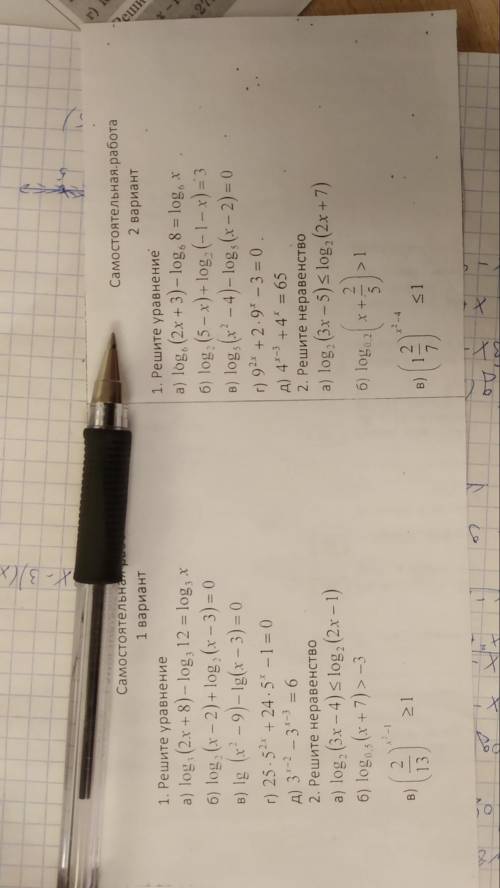 Самостоятельная
1 вариант
1. Решите уравнение
а) log₃(2x + 8) − log₃ 12 = log₃ x
б) log₂(x − 2) + log₂(x − 3) = 0
в) lg(x² − 9) − lg(x − 3) = 0
г) 25 · 5²ˣ + 24 · 5ˣ − 1 = 0
д) 3ˣ⁻² − 3ˣ⁻³ = 6
2. Решите неравенство
а) log₂(3x − 4) ≤ log₂(2x − 1)
б) log₀,₅(x + 7) > −3
в) (2/13)^(x²−1) ≥ 1
Самостоятельная работа
2 вариант
1. Решите уравнение
а) log₆(2x + 3) − log₆ 8 = log₆ x
б) log₂(5 − x) + log₂(−1 − x) = 3
в) log₅(x² − 4) − log₅(x − 2) = 0
г) 9²ˣ + 2 · 9ˣ − 3 = 0
д) 4ˣ⁻³ + 4ˣ = 65
2. Решите неравенство
а) log₂(3x − 5) ≤ log₂(2x + 7)
б) log₀.₂(x + 2/5) > 1
в) (1 2/7)^(x²−4) ≤ 1